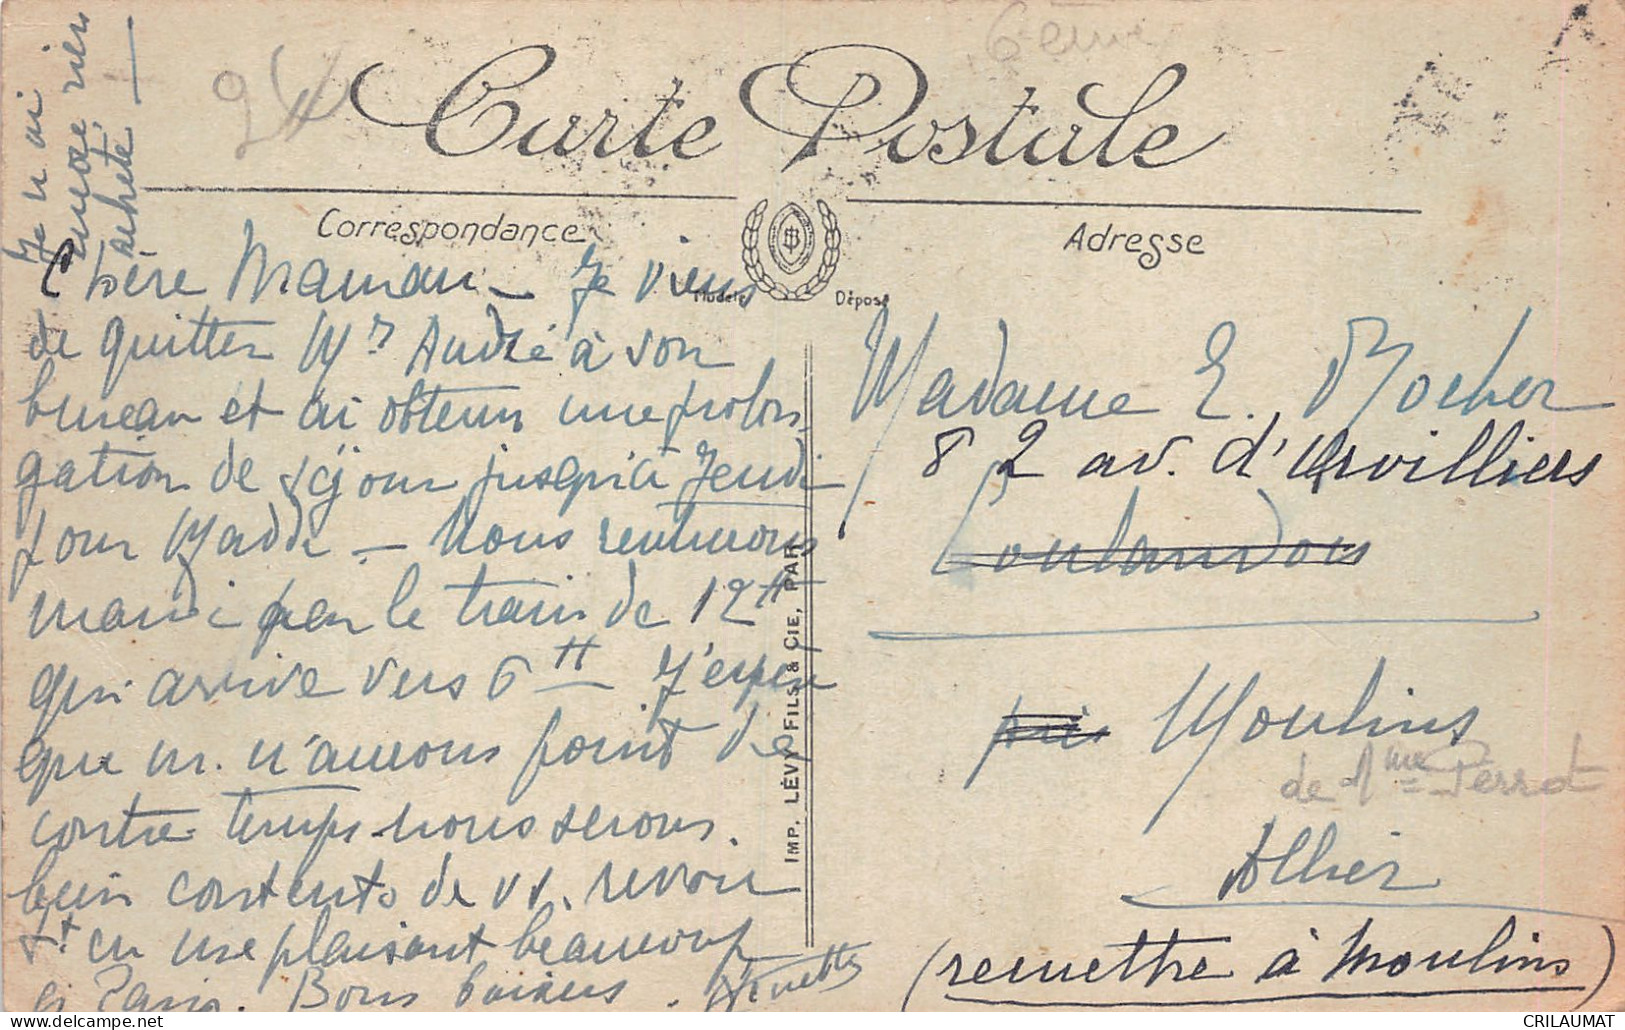 6eme
Carte Postale
Je n'ai
encore rien
acheté
Correspondance
Adresse
Modèle Déposé
Chère Maman – Je viens
de quitter Mr André à son
bureau et ai obtenu une prolon
gation de séjour jusqu'à Jeudi
pour Madd. – Nous rentrerons
mardi par le train de 12H
qui arrive vers 6H J'espère
que n. n'aurons point de
contre-temps nous serons
bien contents de vs. revoir
tt en me plaisant beaucoup
à Paris. Bons baisers.
IMP. LÉVY FILS & CIE, PAR
Madame E. Rocher
82 av. d'Orvilliers
Coulandon
près Moulins
de Mme Perrot
Allier
(remettre à Moulins)
CRILAUMAT